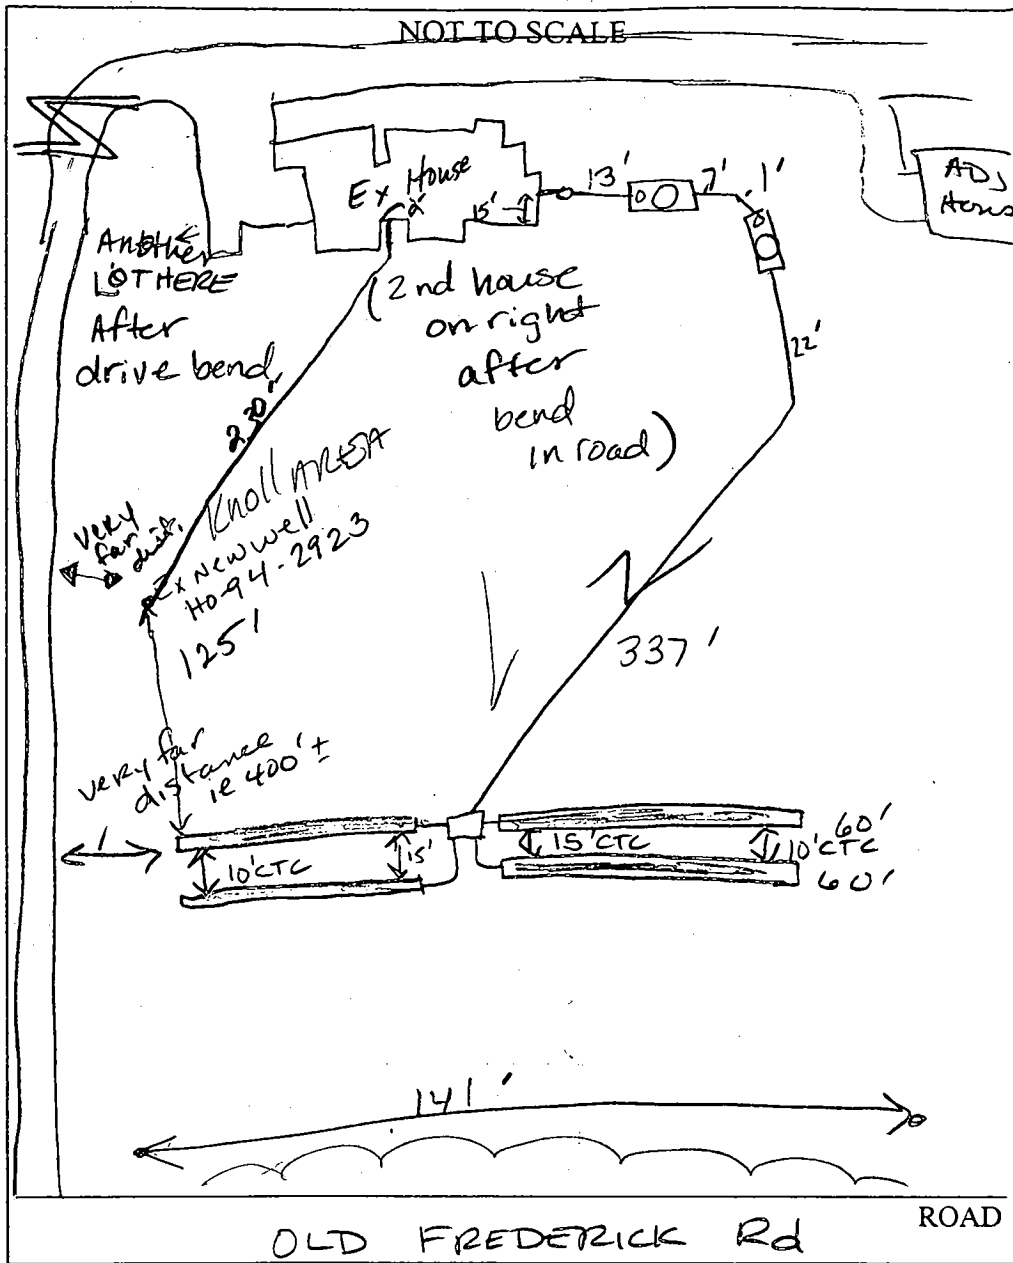 NOT TO SCALE
Ex House
2'
15'
13'
7'
1'
ADJ
House
Another
LOT HERE
After
drive bend
(2nd house
on right
after
bend
in road)
22'
230'
Knoll AREA
very
far
dist.
Ex New well
HO-94-2923
125'
337'
very far
distance
ie 400' ±
60'
10' CTC
15'
15' CTC
10' CTC
60'
141'
ROAD
OLD FREDERICK Rd